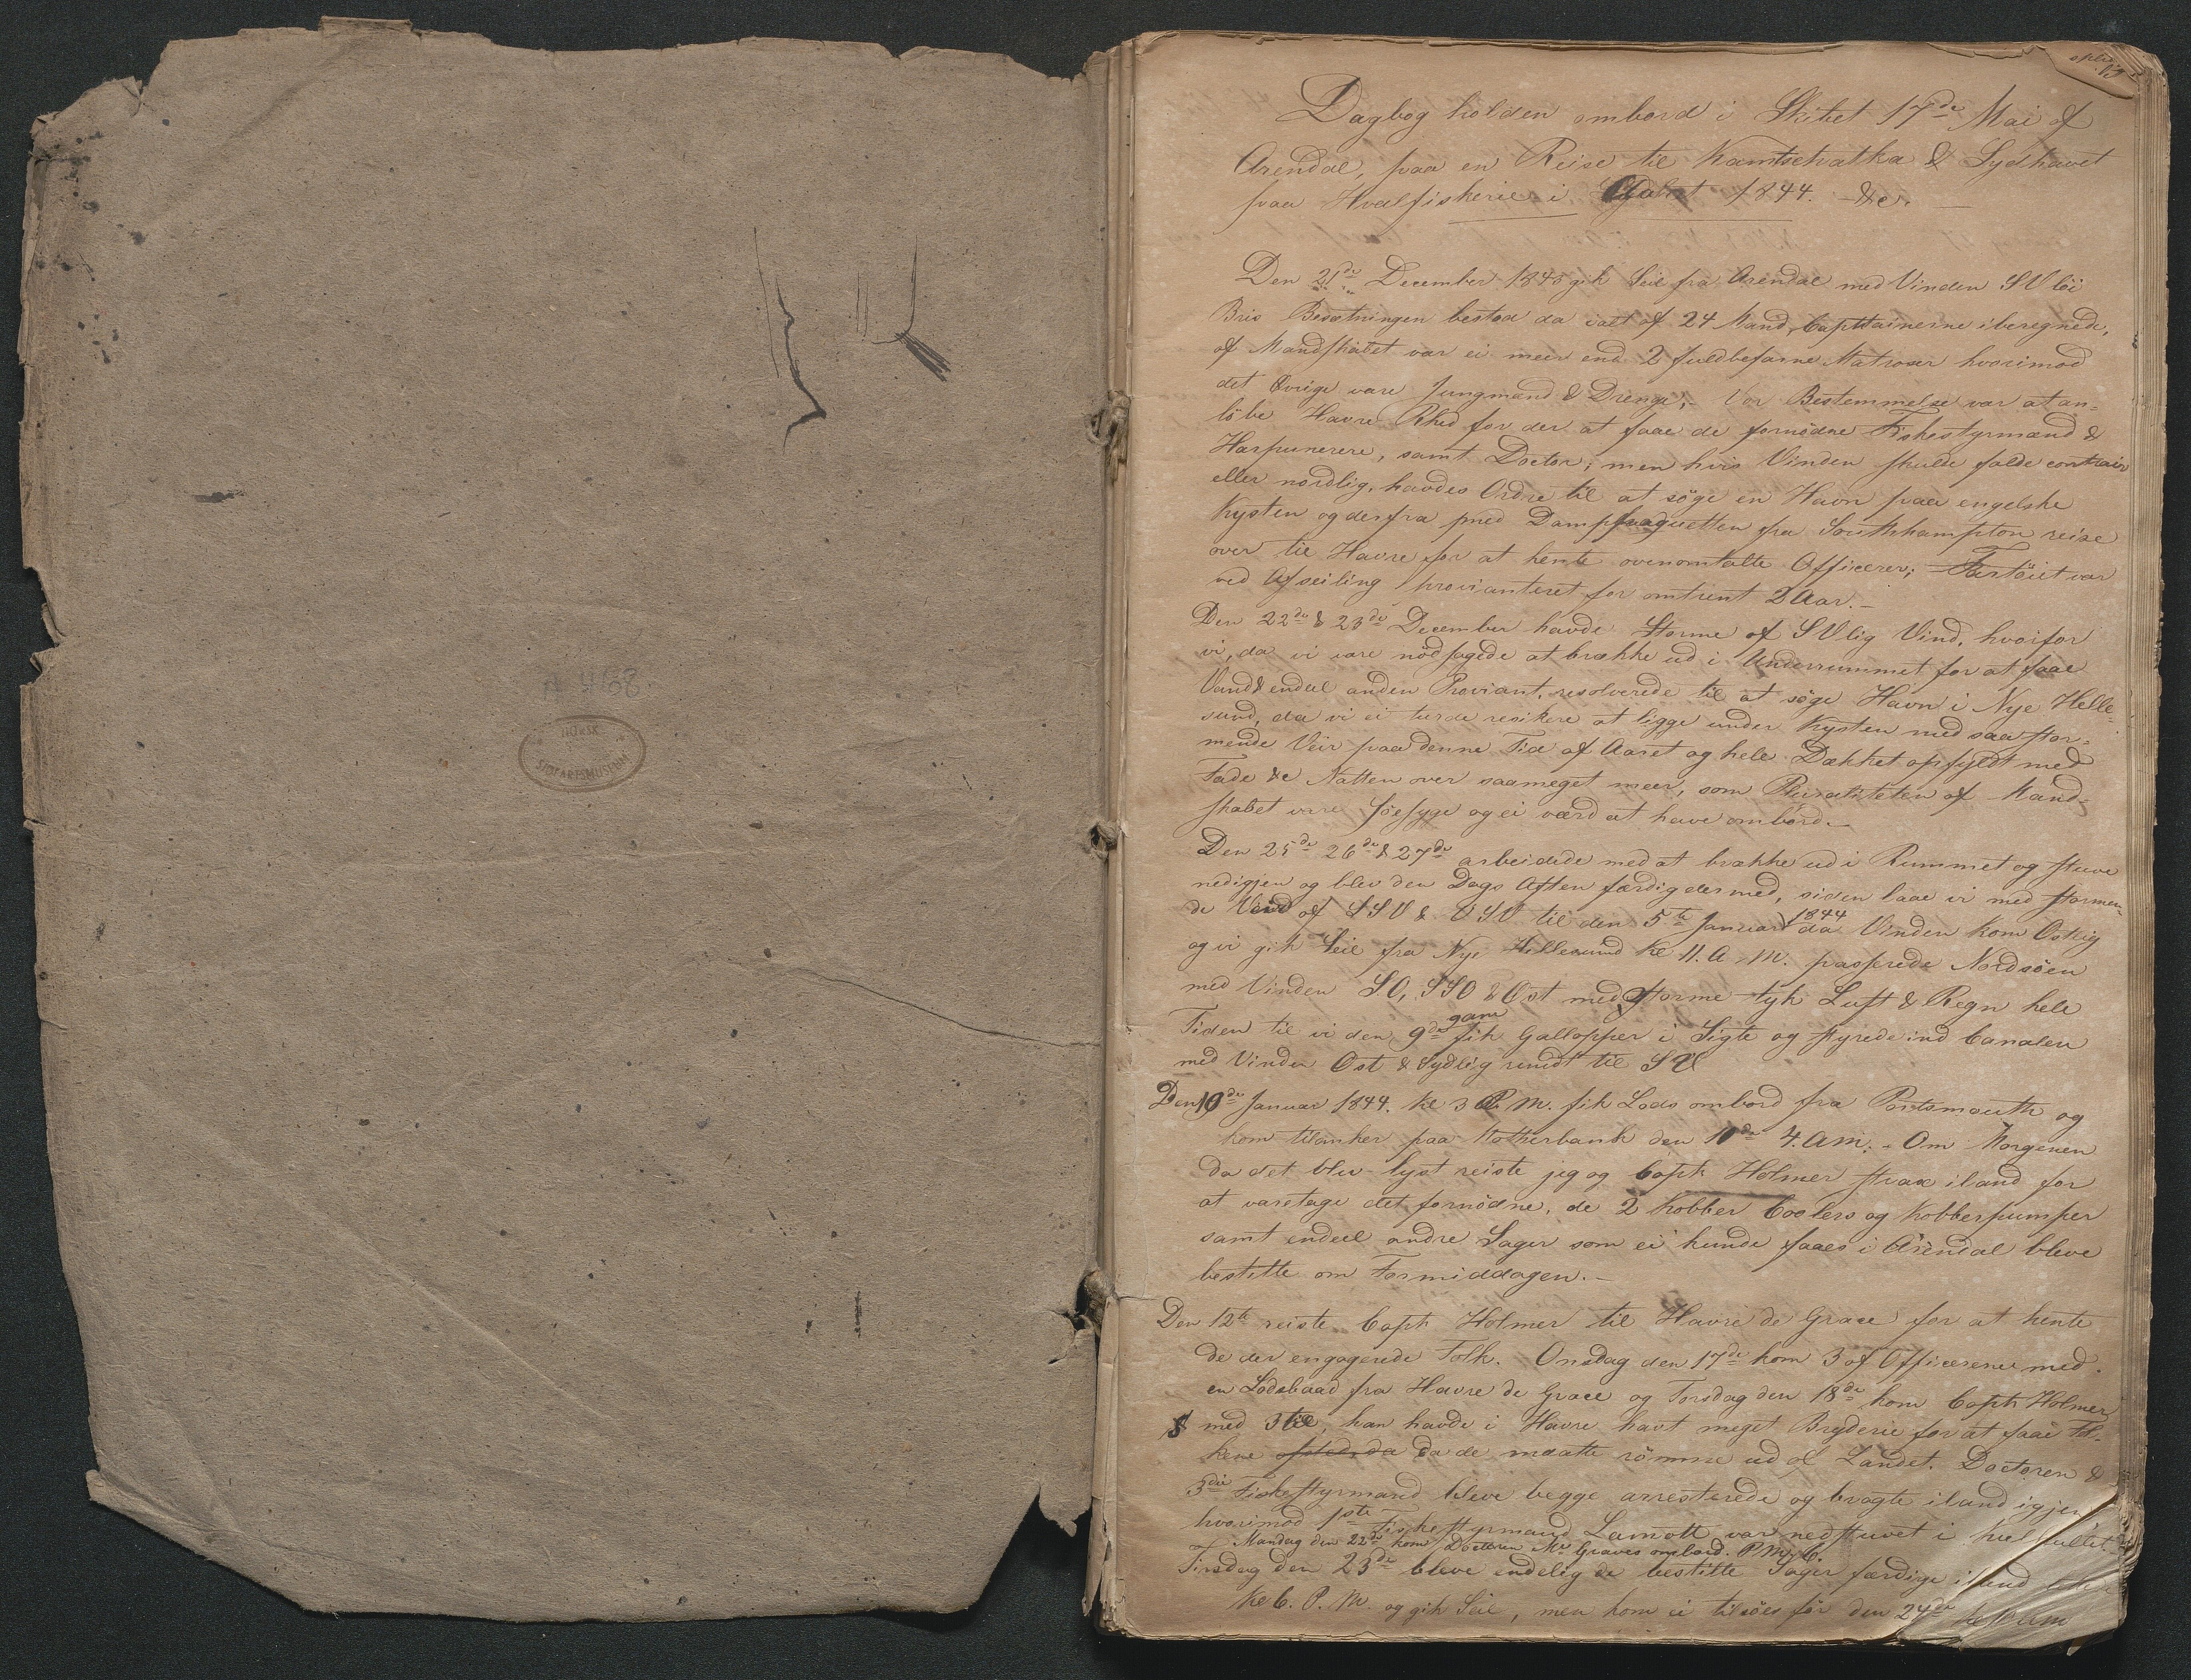 A 468
NORSK
SJØFARTSMUSEUM
Dagbog holden ombord i Skibet 17de Mai af
Arendal, paa en Reise til Kamtschatka & Sydhavet
paa Hvalfiskerie i 1844. &c.
Den 21de December 1843 gik Seil fra Arendal med Vinden SV löi
Bris Besætningen bestod da ialt af 24 Mand, Capitainerne iberegnede,
af Mandskabet var ei meer end 2 fuldbefarne Matroser hvorimod
det Övrige vare Jungmænd & Drenge; Vor Bestemmelse var at an-
löbe Havre Rhed for der at faae de fornödne Fiskestyrmænd &
Harpunerere, samt Doctor; men hvis Vinden skulde falde contrair
eller nordlig, havdes Ordre til at söge en Havn paa engelske
Kysten og derfra med Damppaquetten fra Southhampton reise
over til Havre for at hente ovenomtalte Officerer; Fartöiet var
ved Afseiling provianteret for omtrent 2 Aar.
Den 22de & 23de December havde Storme af SVlig Vind, hvorfor
vi, da vi vare nödsagede at brække ud i Underrummet for at faae
Vand & endeel anden Proviant, resolverede til at söge Havn i Nye Helle-
sund, da vi ei turde resikere at ligge under Kysten med saa stor-
mende Veir paa denne Tid af Aaret og hele Dækket opfyldt med
Fade &c Natten over saameget meer, som Pluraliteten af Mand-
skabet vare söesyge og ei værd at have ombord.
Den 25de 26de & 27de arbeidede med at brække ud i Rummet og stuve
nedigjen og blev den Dags Aften færdig dermed, siden laae vi med stormen-
de Vind af SSV & VSV til den 5te Januar 1844 da Vinden kom Ostlig
og vi gik Seil fra Nye Hellesund Kl 11. A. M. passerede Nordsöen
med Vinden SO, SSO & Ost med Storme tyk Luft & Regn hele
Tiden til vi den 9de fik Gallopper i Sigte og styrede ind Canalen
med Vinden Ost & Sydlig rundt til SV
Den 10de Januar 1844. Kl 3 P. M. fik Lods ombord fra Portsmouth og
kom tilanker paa Motherbank den 10de 4. AM. Om Morgenen
da det blev lyst reiste jeg og Capt Holmer strax iland for
at varetage det fornödne, de 2 Kobber Coolers og Kobberpumper
samt endeel andre Sager som ei kunde faaes i Arendal bleve
bestilte om Formiddagen.
Den 12te reiste Capt Holmer til Havre de Grace for at hente
de der engagerede Folk. Onsdag den 17de kom 3 af Officererne med
en Lodsbaad fra Havre de Grace og Torsdag den 18de kom Capt Holmer
med 3 til, han havde i Havre havt meget Bryderie for at faae Fol-
kene da de maatte römme ud af Landet. Doctoren &
3die Fiskestyrmand bleve begge arresterede og bragte iland igjen
hvorimod 1ste Fiskestyrmand Lamott var nedstuvet i
Mandag den 22de kom Doctoren Mr Graves ombord. P. M. 6.
Tirsdag den 23de bleve endelig de bestilte Sager færdige iland
Kl 6. P. M. og gik Seil, men kom ei tilsöes för den 24de